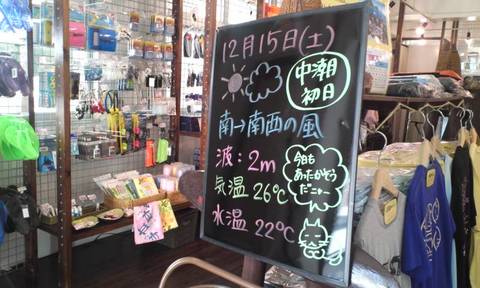 12月15日(土)
中潮
初日
南→南西の風
波:2m
気温 26℃
水温 22℃
今日も
あったかそう
だニャー